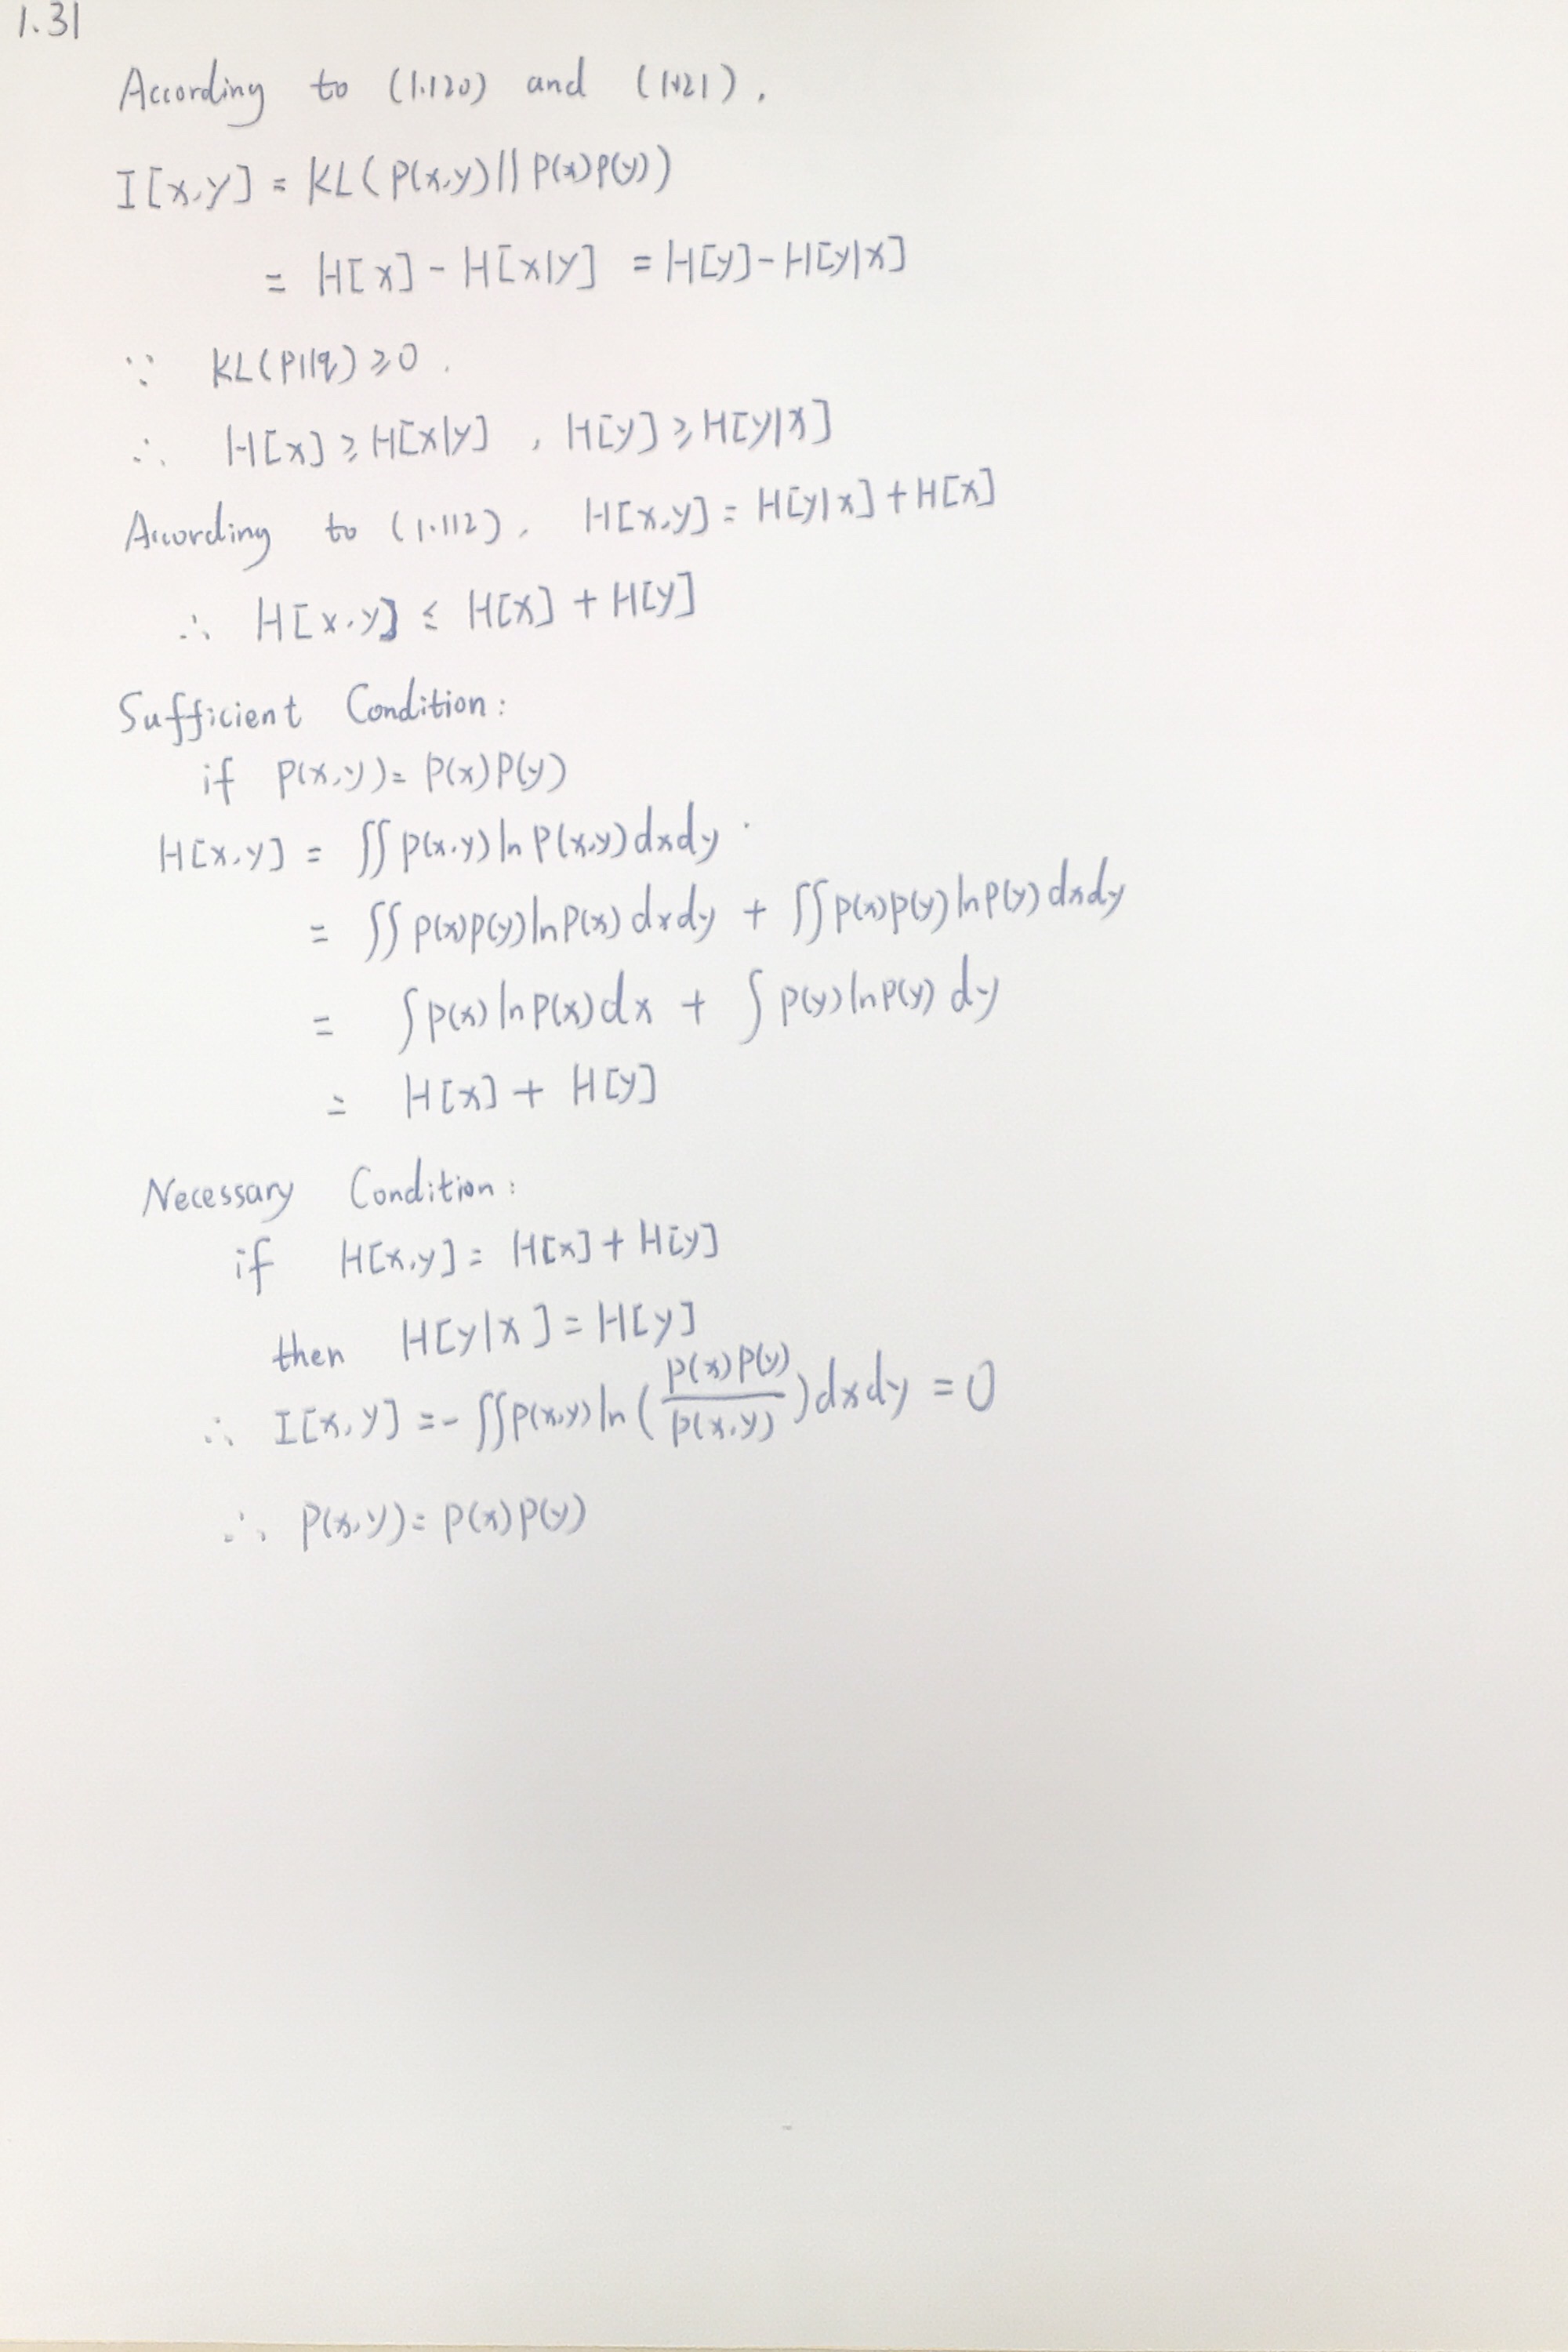 1.31
According to (1.120) and (1.121),
I[x,y] = KL(p(x,y)||p(x)p(y))
= H[x] - H[x|y] = H[y] - H[y|x]
∵ KL(p||q) ≥ 0.
∴ H[x] ≥ H[x|y] , H[y] ≥ H[y|x]
According to (1.112), H[x,y] = H[y|x] + H[x]
∴ H[x,y] ≤ H[x] + H[y]
Sufficient Condition:
if p(x,y) = p(x)p(y)
H[x,y] = ∬ p(x,y) ln p(x,y) dxdy
= ∬ p(x)p(y) ln p(x) dxdy + ∬ p(x)p(y) ln p(y) dxdy
= ∫ p(x) ln p(x) dx + ∫ p(y) ln p(y) dy
= H[x] + H[y]
Necessary Condition:
if H[x,y] = H[x] + H[y]
then H[y|x] = H[y]
∴ I[x,y] = - ∬ p(x,y) ln (p(x)p(y) / p(x,y)) dxdy = 0
∴ p(x,y) = p(x)p(y)